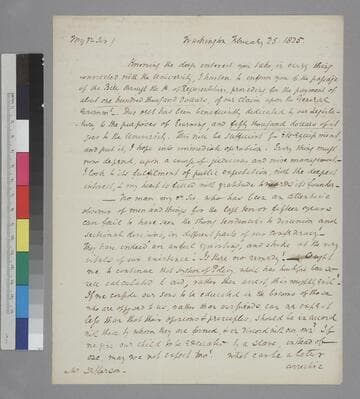 My Dr Sir! Washington February 25. 1825
Knowing the deep interest you take in every thing
connected with the University, I hasten to inform you of the passage
of the Bill through the H. of Representatives, providing for the payment of
about one hundred thousand dollars, of our claim upon the General
Government. This debt has been heretofore dedicated, by our Legisla-
ture, to the purposes of Learning, and fifty thousand dollars of it
goes to the University. This will be sufficient for its equipment
and put it, I hope into immediate operation. Every thing must
now depend upon a course of judicious and wise management.
I look to its fulfilment of public expectation, with the deepest
interest, & my heart is filled with gratitude to its founder.
No man my dr Sir, who has been an attentive
observer of men and things for the last ten or fifteen years
can fail to have seen the strong tendencies to disunion and
sectional divisions, in different parts of our confederacy.
They have indeed an awful squinting, and strike at the very
vitals of our existence. Is there no remedy? Ought
we to continue this system of Policy which has heretofore been
calculated to aid, rather than arrest this mighty evil?
If we confide our sons to be educated in the bosoms of those
who are opposed to us, rather than our friends can we expect
less than that their opinions & principles should be in accord
with those by whom they are formed & in discord with our own? If
we give our child to be educated by a slave, instead of
one, may we not expect two? What can be a better
corrective
Mr Jefferson.